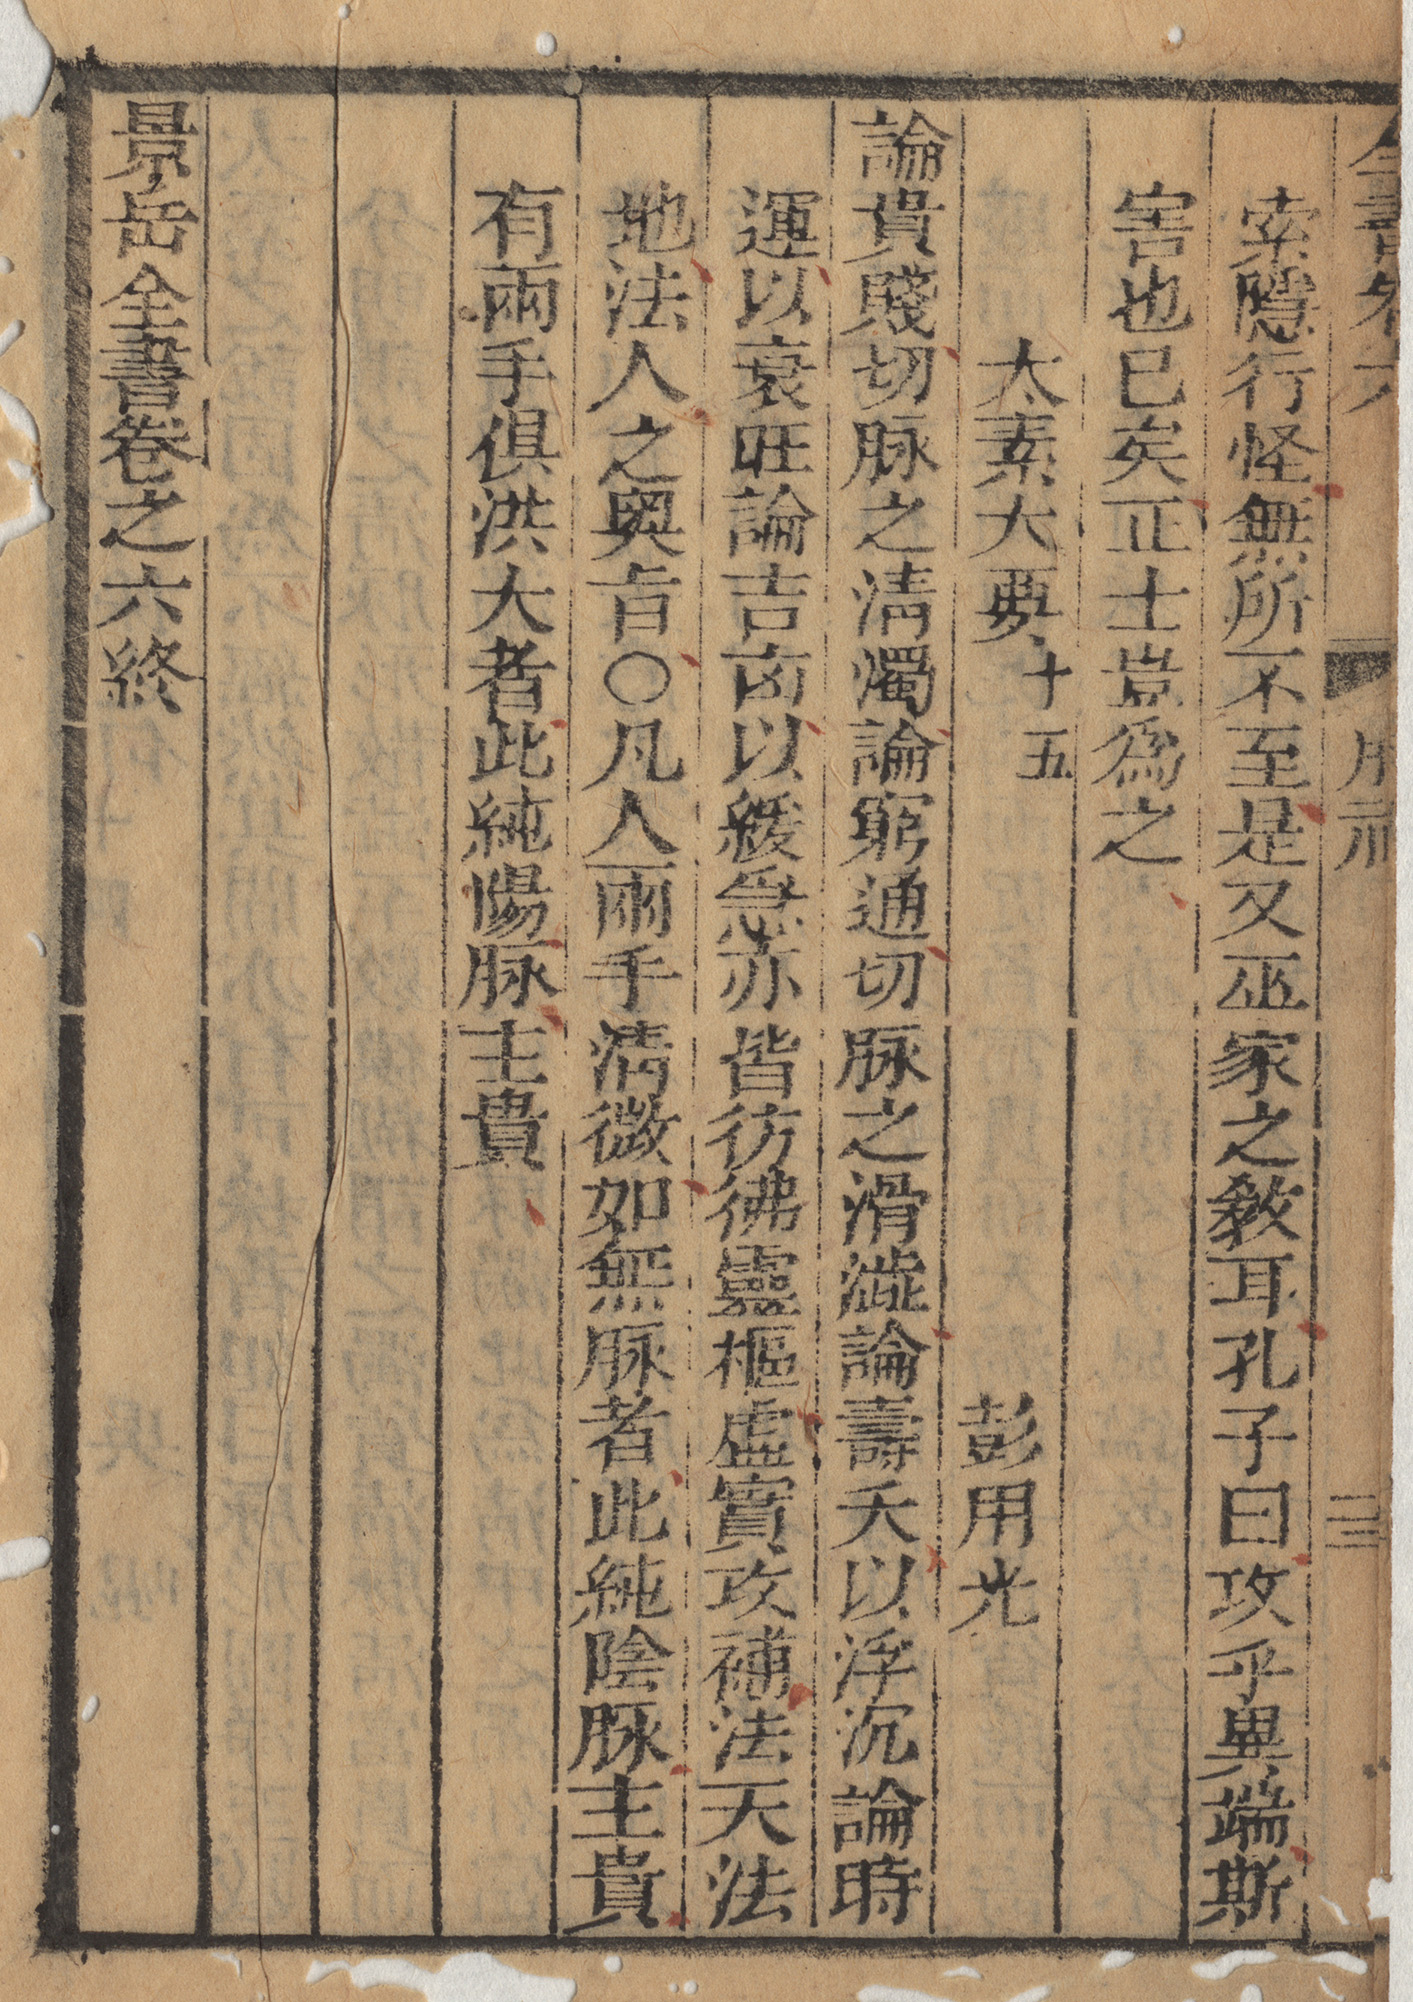 全書卷六 脉神 三三
索隱行怪無所不至是又巫家之敎耳孔子曰攻乎異端斯
害也已矣正士豈爲之
太素大要十五 彭用光
論貴賤切脉之淸濁論窮通切脉之滑澁論壽夭以浮沉論時
運以衰旺論吉凶以緩急亦皆彷彿靈樞虛實攻補法天法
地法人之奥㫖〇凡人兩手淸微如無脉者此純陰脉主貴
有兩手俱洪大者此純陽脉主貴
景岳全書卷之六終